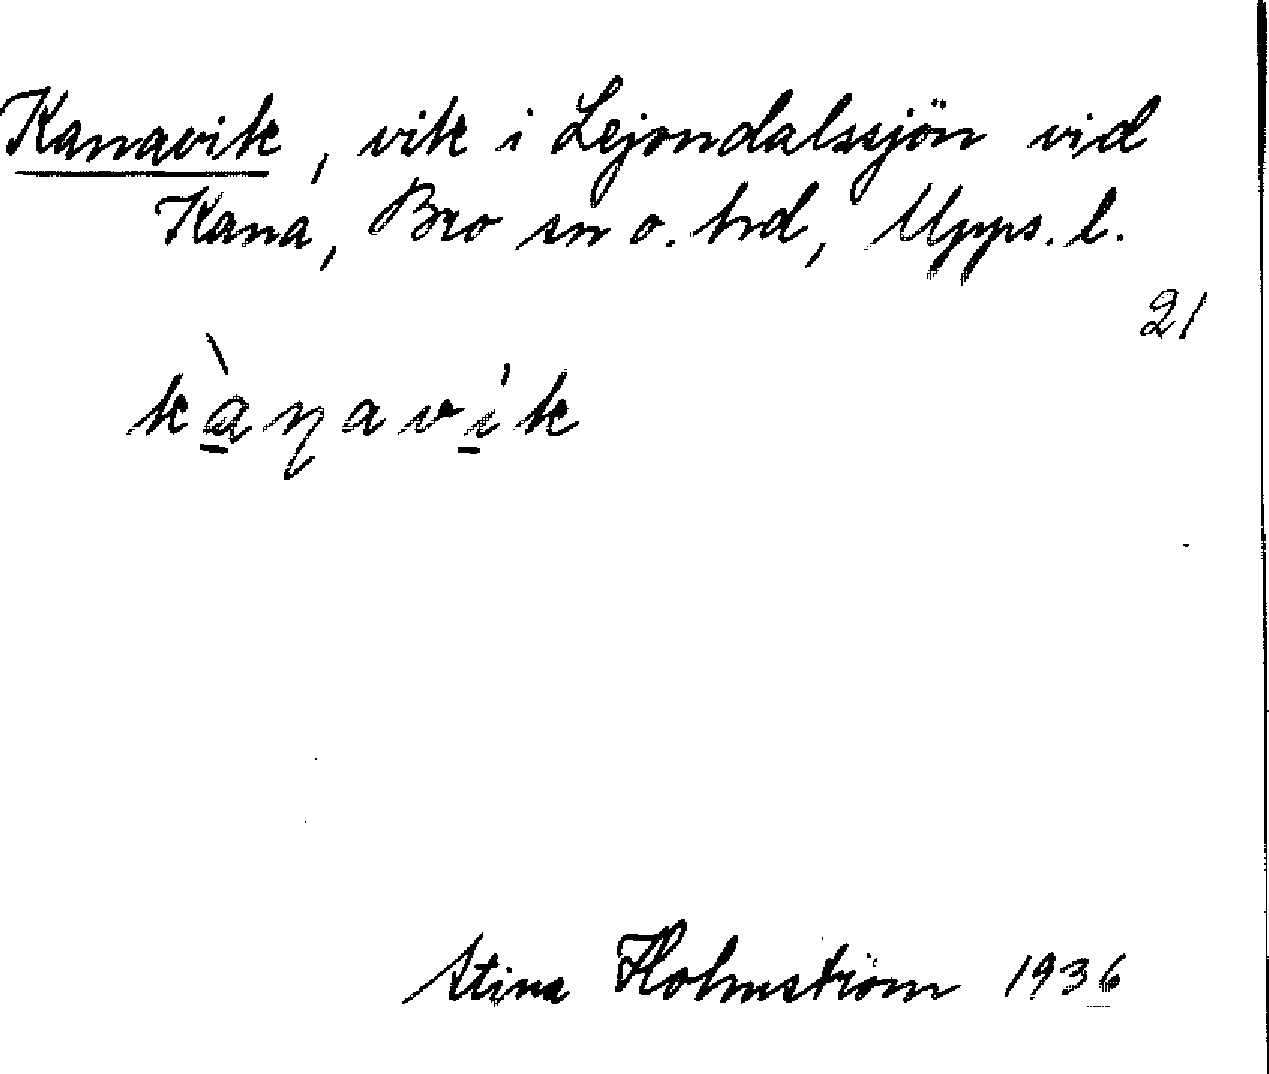 Kanavik, vik i Lejondalssjön vid
Kana, Bro sn o. hd, Upps. l.
21
kànavík
Stina Holmström 1936